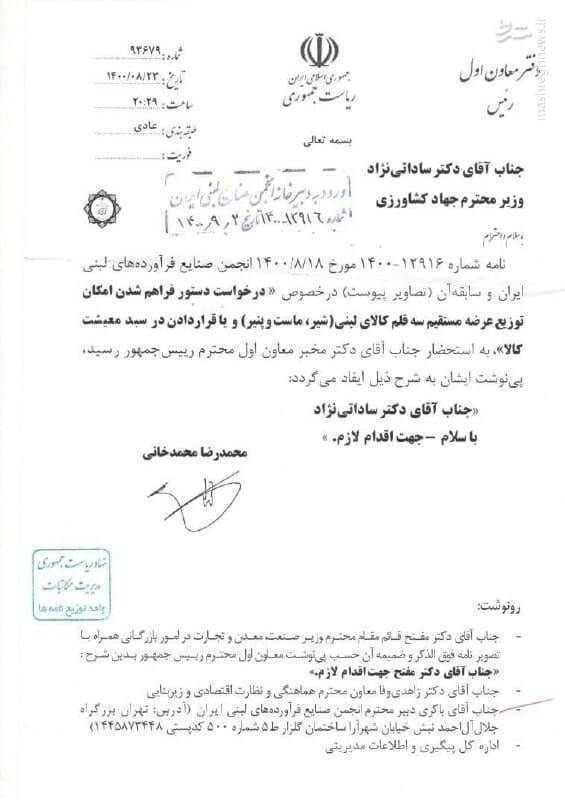 مشرق
mashreghnews.ir
دفتر معاون اول
رئیس
جمهوری اسلامی ایران
ریاست جمهوری
شماره: ۹۳۶۷۹
تاریخ: ۱۴۰۰/۰۸/۲۳
ساعت: ۲۰:۲۹
طبقه بندی: عادی
فوریت:
بسمه تعالی
جناب آقای دکتر ساداتی‌نژاد
وزیر محترم جهاد کشاورزی
ورود به دبیرخانه انجمن صنایع لبنی ایران
شماره ۱۲۹۱۶-۱۴۰۰ تاریخ ۱۴۰۰,۹,۲
با سلام و احترام
نامه شماره ۱۲۹۱۶-۱۴۰۰ مورخ ۱۴۰۰/۸/۱۸ انجمن صنایع فرآورده‌های لبنی
ایران و سابقه‌آن (تصاویر پیوست) درخصوص «درخواست دستور فراهم شدن امکان
توزیع عرضه مستقیم سه قلم کالای لبنی(شیر، ماست و پنیر) و یا قراردادن در سبد معیشت
کالا»، به استحضار جناب آقای دکتر مخبر معاون اول محترم رییس‌جمهور رسید،
پی‌نوشت ایشان به شرح ذیل ایفاد می‌گردد:
«جناب آقای دکتر ساداتی‌نژاد
با سلام – جهت اقدام لازم. »
محمدرضا محمدخانی
نهاد ریاست جمهوری
مدیریت مکاتبات
واحد توزیع نامه ها
رونوشت:
- جناب آقای دکتر مفتح قائم مقام محترم وزیر صنعت، معدن و تجارت در امور بازرگانی همراه با
تصویر نامه فوق الذکر و ضمیمه آن حسب پی‌نوشت معاون اول محترم رییس جمهور بدین شرح :
«جناب آقای دکتر مفتح جهت اقدام لازم.»
- جناب آقای دکتر زاهدی‌وفا معاون محترم هماهنگی و نظارت اقتصادی و زیربنایی
- جناب آقای باکری دبیر محترم انجمن صنایع فرآورده‌های لبنی ایران (آدرس: تهران بزرگراه
جلال‌آل‌احمد نبش خیابان شهرآرا ساختمان گلزار ط۵ شماره ۵۰۰ کدپستی ۱۴۴۵۸۷۳۴۴۸)
- اداره کل پیگیری و اطلاعات مدیریتی